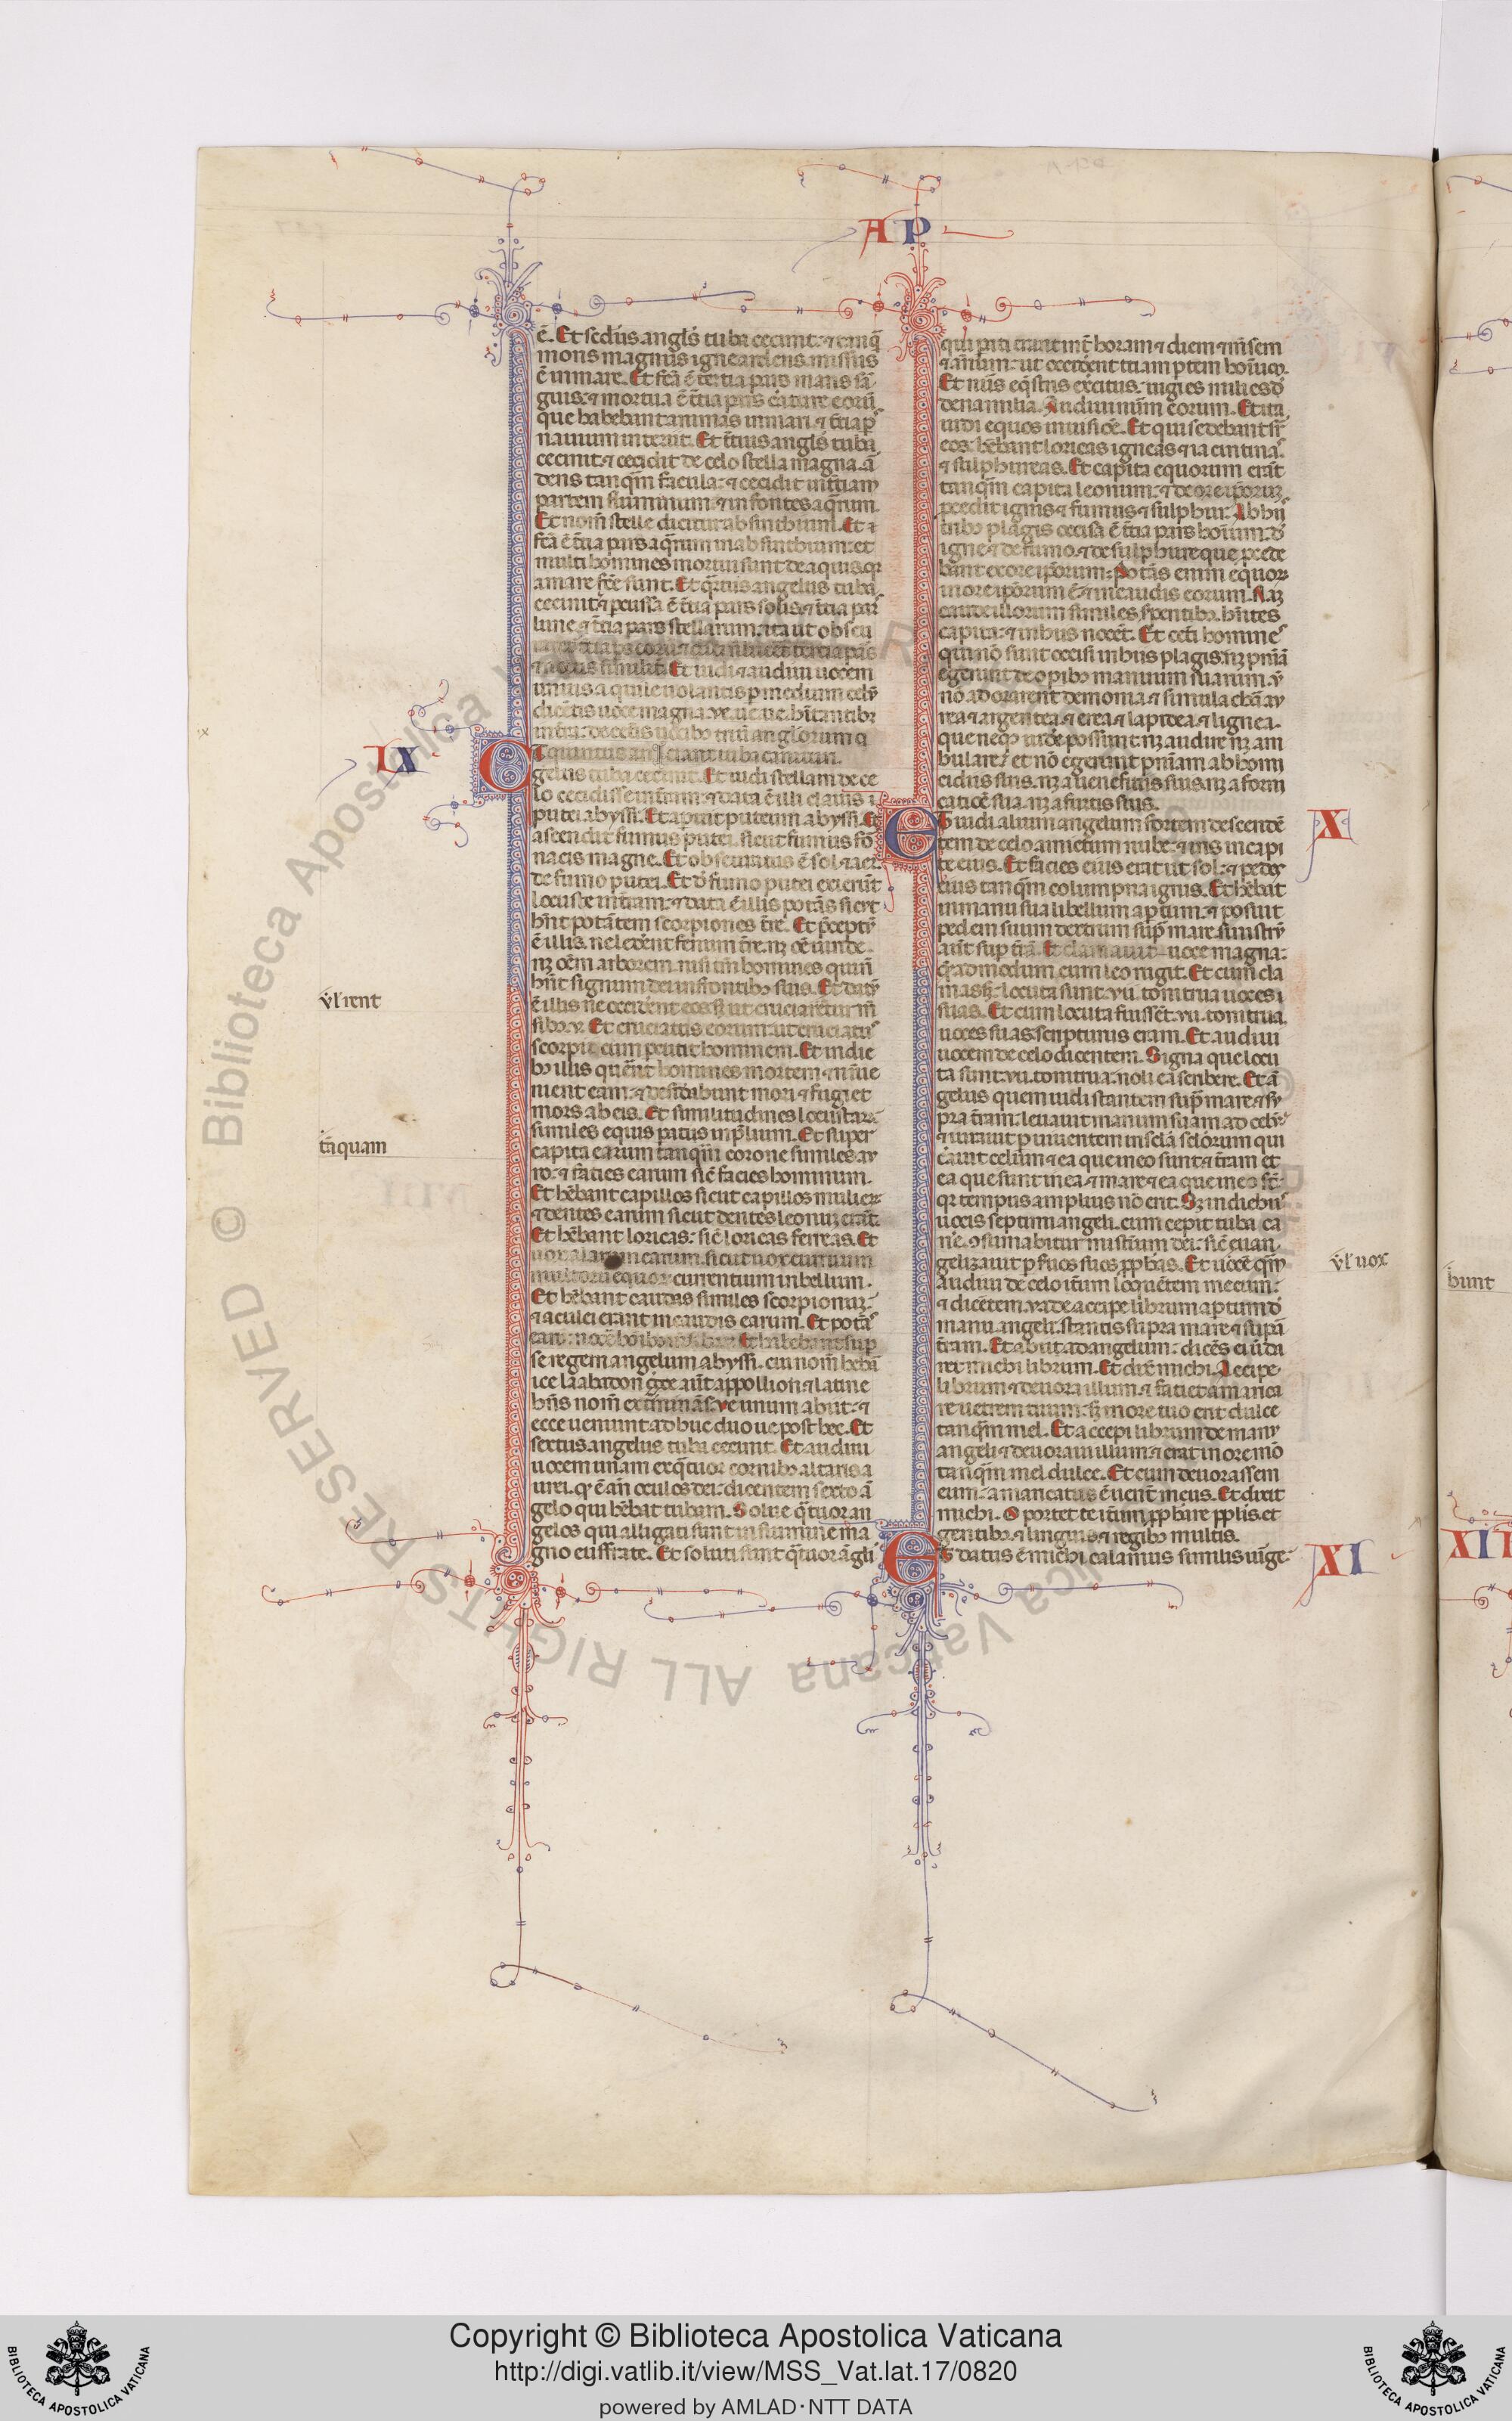 AP
ē. Et secūs angl's tuba cecinit: ⁊ tanq̄
mons magnus igne ardens missus
ē in mare. Et fc̄a ē tertia pars maris sā-
guis: ⁊ mortua ē t̄tia pars c̄ature eorū
que habebant animas in mari. ⁊ t̄tia pˢ
nauium interiit. Et t̄tius angl's tuba
cecinit. ⁊ cecidit de celo stella magna. ā
dens tanq̄m facula: ⁊ cecidit in t̄tiam
partem fluminum: ⁊ in fontes aq̄rum.
Et nom̄ stelle dicitur absinthium. Et
fc̄a ē t̄tia pars aq̄rum in absinthium: et
multi homines mortui sunt de aquis. qr
amare fc̄e sunt. Et q̄rtus angelus tuba
cecinit. ⁊ pcussa ē t̄tia pars solis. ⁊ t̄tia pars
lune. ⁊ t̄tia pars stellarum: ita ut obscu
Et uidi ⁊ audiui uocem
unius aquile uolantis p medium celi
dicētis uoce magna. ve. ue. ue. hītantibꝫ
IX
Et quintus an
ciant tuba canituri.
gelus tuba cecinit. Et uidi stellam de ce
lo cecidisse in t̄ram: ⁊ data ē illi clauis
putei abyssi. Et apuit puteum abyssi. Et
ascendit fumus putei. sicut fumus fo
nacis magne. Et obscuratus ē sol ⁊ aer.
de fumo putei. Et d' fumo putei exierūt
locuste in t̄ram: ⁊ data ē illis potās sicut
hn̄t potātem scorpiones t̄re. Et p̄ceptū
ē illis. ne lederēt fenum t̄re. nꝫ oē uiride.
nꝫ oēm arborem. nisi tm̄ homines qui nō
hn̄t signum dei in frontibꝫ suis. Et datū
v̄l irent
ē illis ne occiderēt eos: sꝫ ut cruciarētur m̄
sibꝫ. v. Et cruciatus eorum: ut cruciatuˢ
scorpii cum pcutit hominem. Et in die
bꝫ illis querēt homines mortem ⁊ n̄ inue
nient eam: ⁊ desidabunt mori ⁊ fugiet
mors ab eis. Et similitudines locustar̄:
similes equis patis in p̄lium. Et super
tāquam
capita earum tanq̄m corone similes au
ro: ⁊ facies earum sic̄ facies hominum.
Et hēbant capillos sicut capillos mulier̄.
⁊ dentes earum sicut dentes leonuꝫ erāt.
Et hēbant loricas: sic̄ loricas ferreas. Et
uox alarum earum. sicut uox curruum
multorū equor̄ currentium in bellum.
Et hēbant caudas similes scorpionuꝫ:
⁊ aculei erant in caudis earum. Et potāˢ
Et habebant sup
se regem angelum abyssi. cui nom̄ hebā
ice laabadon. grece aūt appollion ⁊ latine
hn̄s nom̄ ext̄minās. ve unum abiit: ⁊
ecce ueniunt adhuc duo ue post hec. Et
sextus angelus tuba cecinit. Et audiui
uocem unam ex q̄tuor cornibꝫ altaris a
urei. qđ ē an̄ oculos dei: dicentem sexto ā
gelo qui hēbat tubam. Solue q̄tuor an
gelos qui alligati sunt in flumine ma
gno euffrate. Et soluti sunt q̄tuor āgli
qui pati erant in t̄ horam ⁊ diem ⁊ m̄sem
⁊ annum: ut occiderent t̄tiam ptem hoīuꝫ.
Et nūs eq̄stris exercitus: uigies milies d'
dena milia. Audiui num̄ eorum. Et ita
uidi equos in uisiōe. Et qui sedebant sr̄
eos: hēbant loricas igneas ⁊ iacintinaˢ
⁊ sulphureas. Et capita equorum erāt
tanq̄m capita leonum: ⁊ de ore ip̄oruꝫ
pcedit ignis ⁊ fumus ⁊ sulphur. Ab hiis
tribꝫ plagis occisa ē t̄tia pars hoīum: d'
igne ⁊ de fumo. ⁊ de sulphure que pcede
bant ex ore ip̄orum: Potās enim equor̄
in ore ip̄orum ē. ⁊ in caudis eorum. Naꝫ
caude illorum similes. spentibꝫ. hn̄tes
capita: ⁊ in hiis nocēt. Et cet̄i homineˢ
qui nō sunt occisi in hiis plagis. nꝫ pn̄iā
egerunt de opibꝫ manuum suarum. ut
nō adorarent demonia. ⁊ simulachra au
rea ⁊ argentea. ⁊ erea ⁊ lapidea. ⁊ lignea.
que neqꝫ uide possunt: nꝫ audire nꝫ am
bulare/ et nō egerunt pn̄iam ab homi
cidiis suis. nꝫ a ueneficiis suis. nꝫ a forni
catiōe sua. nꝫ a furtis suis.
X
Et uidi alium angelum fortem descendē
tem de celo. amictum nube: ⁊ iris in capi
te eius. Et facies eius erat ut sol: ⁊ pedes
eius tanq̄m columpna ignis. Et hēbat
in manu sua libellum aptum: ⁊ posuit
pedem suum dextrum sup̄ mare. sinistrū
aūt sup t̄rā. Et clamauit uoce magna:
q̄admodum cum leo rugit. Et cum cla
masꝫ: locuta sunt. vii. tonitrua uoces
suas. Et cum locuta fuissēt. vii. tonitrua
uoces suas: scripturus eram. Et audiui
uocem de celo dicentem. Signa que locu
ta sunt. vii. tonitrua: noli ea scribere. Et ā
gelus quem uidi stantem sup̄ mare. ⁊ su
pra t̄ram: leuauit manum suam ad celū:
⁊ iurauit p uiuentem in scla sclorum qui
c̄auit celum ⁊ ea que in eo sunt: ⁊ t̄ram et
ea que sunt in ea. ⁊ mare ⁊ ea que in eo st̄:
qr tempus amplius nō erit. Sꝫ in diebuˢ
uocis septimi angeli. cum cepit tuba ca
ne. ꝯsumabitur mist̄ium dei: sic̄ euan
gelizauit p suos seruos pphas. Et uocē q̄m
v̄l uox
audiui de celo it̄um loquētem mecum:
⁊ dicētem. vade accipe librum aptum d'
manu angeli. stantis supra mare ⁊ supā
t̄ram. Et abii ad angelum: dicēs ei ut da
ret michi librum. Et dix̄ michi. Accipe
librum ⁊ deuora illum. ⁊ faciet amarica
re uentrem tuum: sꝫ in ore tuo erit dulce
tanq̄m mel. Et accepi librum de manu
angeli ⁊ deuoraui illum: ⁊ erat in ore mō
tanq̄m mel dulce. Et cum deuorassem
eum: amaricatus ē uent̄ meus. Et dixit
michi. Oportet te it̄um pphare pplis. et
gentibꝫ. ⁊ linguis ⁊ regibꝫ multis.
XI
Et datus ē michi calamus similis uirge:
bunt
XII
Copyright © Biblioteca Apostolica Vaticana
http://digi.vatlib.it/view/MSS_Vat.lat.17/0820
powered by AMLAD · NTT DATA
BIBLIOTECA APOSTOLICA VATICANA
BIBLIOTECA APOSTOLICA VATICANA
© Biblioteca Apostolica Vaticana ALL RIGHTS RESERVED